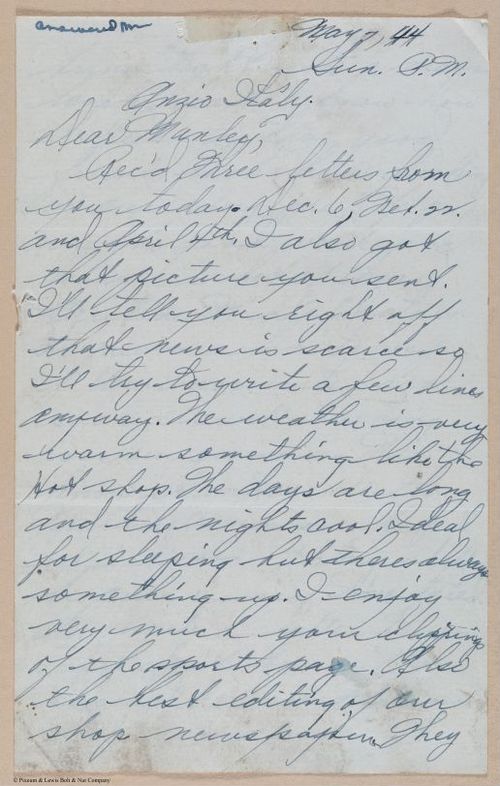 answered
May 7, 44
Sun. P.M.
Anzio Italy.
Dear Manley,
Rec'd three letters from
you today. Dec. 6, Feb. 22.
and April 4th. I also got
that picture you sent.
I'll tell you right off
that news is scarce so
I'll try to write a few lines
anyway. The weather is very
warm something like the
Hot shop. The days are long
and the nights cool. Ideal
for sleeping but theres always
something up. I enjoy
very much your clippings
of the sports page. Also
the best editing of our
shop newspaper. They
© Pizzum & Lewis Bolt & Nut Company